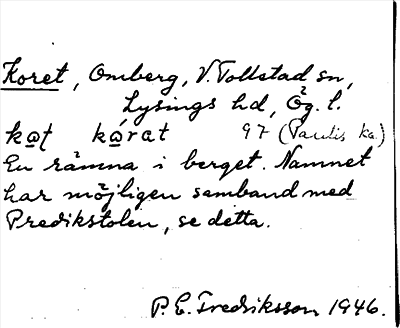 Koret, Omberg, V. Tollstad sn,
Lysings hd, Ög. l.
kat kårat 97 (Paulis ka.)
En rämna i berget. Namnet
har möjligen samband med
Predikstolen, se detta.
P. E. Fredriksson 1946.